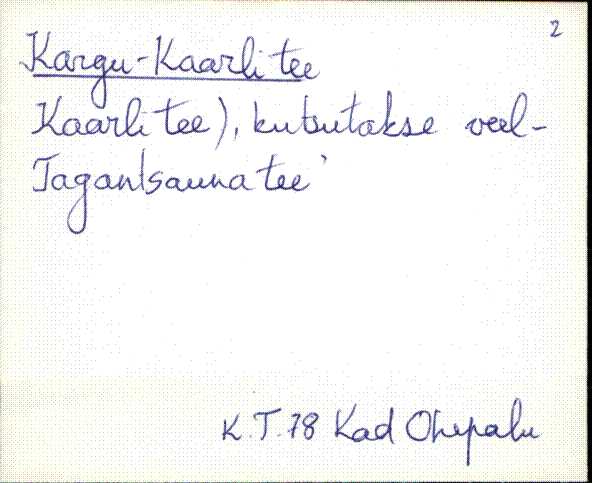 2
Kargu-Kaarli tee
Kaarli tee), kutsutakse veel-
Tagantsauna tee'
K.T. 78 Kad Ohepalu